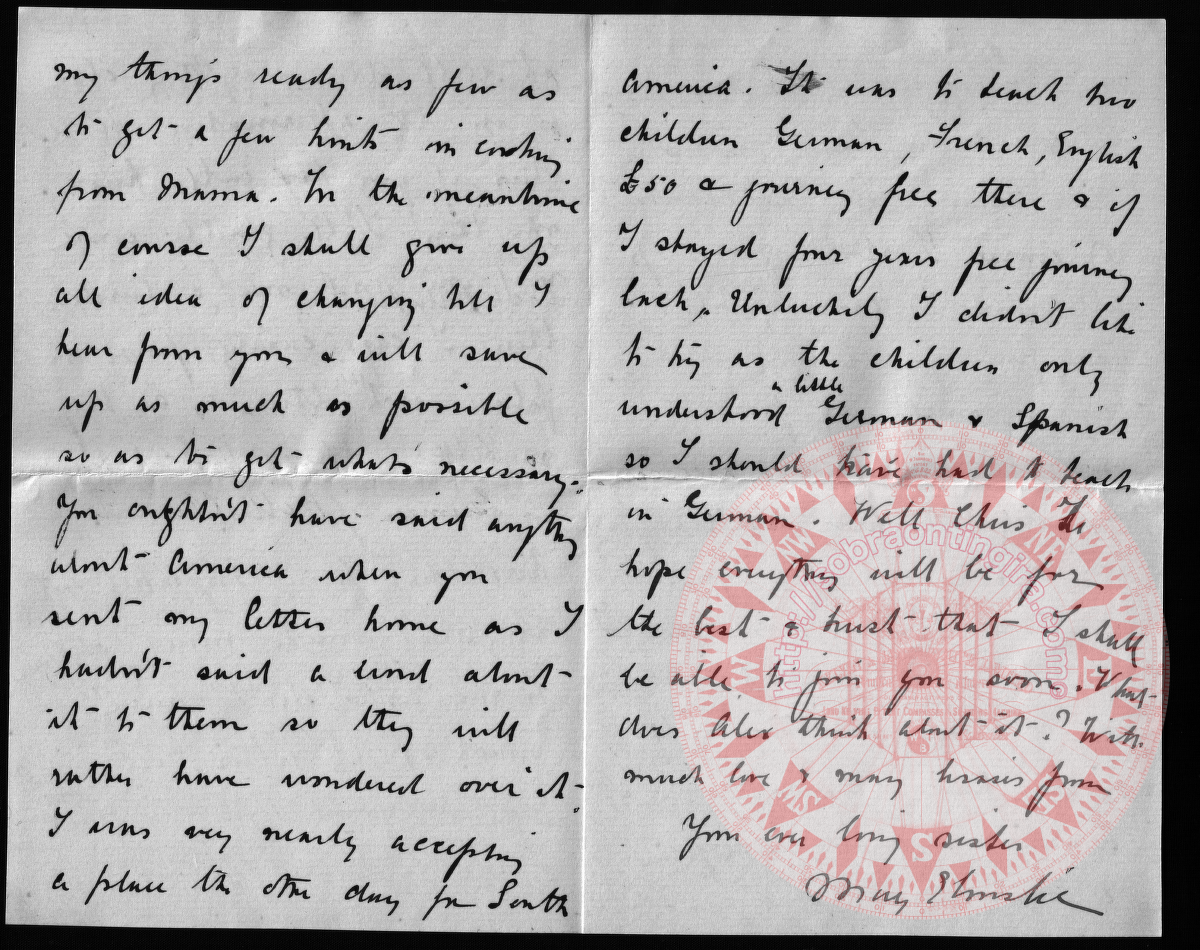 my things ready as few as
to get a few hints in cooking
from Mama. In the meantime
of course I shall give up
all idea of changing till I
hear from you & will save
up as much as possible
so as to get what's necessary.
You oughtn't have said anything
about America when you
sent my letter home as I
hadn't said a word about
it to them so they will
rather have wondered over it.
I was very nearly accepting
a place the other day for South
America. It was to teach two
children German, French, English
£50 & journey free there & if
I stayed four years free journey
back. Unluckily I didn't like
to try as the children only
a little
understood German & Spanish
so I should have had to teach
in German. Well Chris
hope everything will be for
the best & trust that I shall
be able to join you soon. What
does Alex think about it? With
much love & many kisses from
Your ever loving sister
May Elmslie
http://sobraontingira.com
S
NW
W
E
SW
SE
S